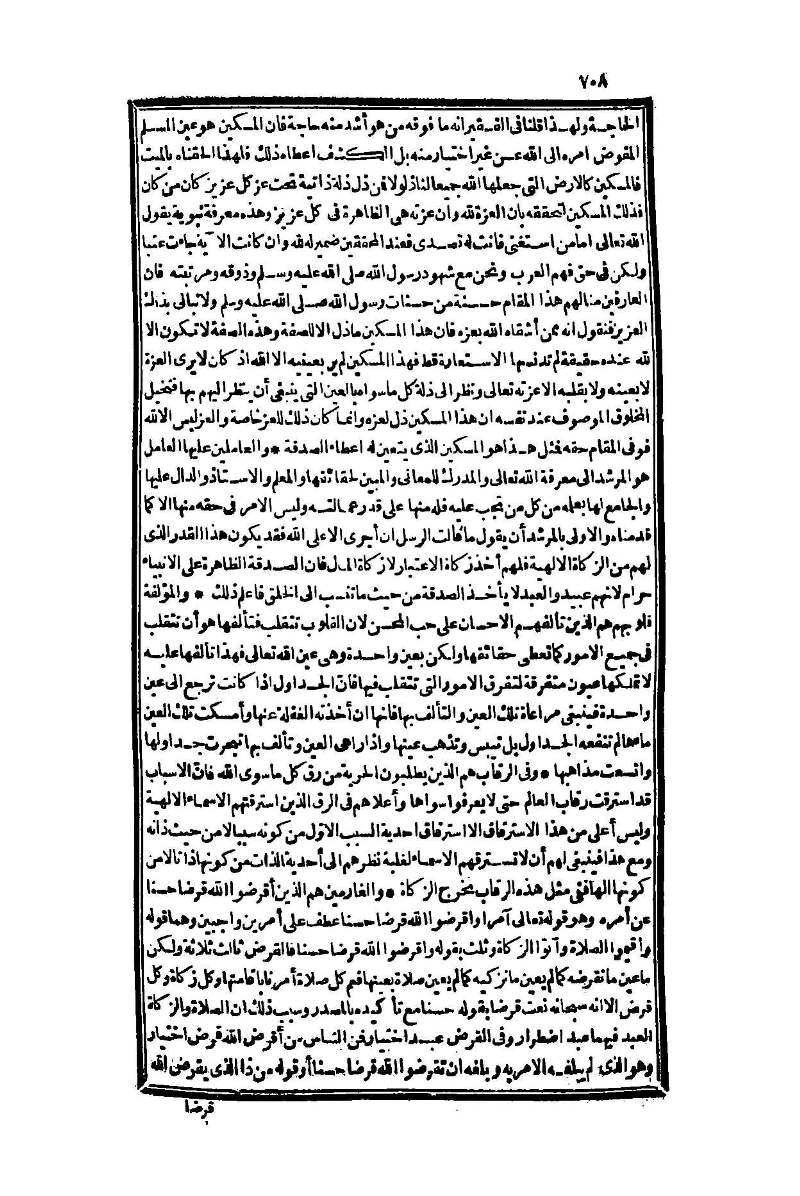 ٧٠٨
الحاجة ولهذا قلنا فى الفقير انه ما فوقه من هو أشد منه حاجة فان المسكين هو عين المسلم
المفوض امره الى الله عن غير اختيار منه بل الكشف اعطاه ذلك فلهذا الحقناه بالميت
فالمسكين كالارض التى جعلها الله جميعا لنا ذلولا فمن ذل ذلة ذاتية تحت عز كل عزيز كان من كان
فذلك المسكين لتحققه بان العزة لله وان عزته هى الظاهرة فى كل عزيز وهذه معرفة نبوية يقول
الله تعالى اما من استغنى فانت له تصدى فعند المحققين ضمير له لله وان كانت الآية جاءت عتبا
ولكن فى حق فهم العرب ونحن مع شهود رسول الله صلى الله عليه وسلم وذوقه ومرتبته فان
العارفين منالهم هذا المقام حسنة من حسنات رسول الله صلى الله عليه وسلم ولا تبالى بذلك
العزيز فنقول انه ممن أشقاه الله بعزه فان هذا المسكين ما ذل الا للصفة وهذه الصفة لا تكون الا
لله عنده حقيقة لم تدنسها الاستعارة قط فهذا المسكين لم ير بعينيه الا الله اذ كان لا يرى العزة
لا بعينه ولا بقلبه الا عزته تعالى ونظر الى ذلة كل ما سواه بالعين التى ينبغى أن ينظر اليهم بها فتخيل
المخلوق الموصوف عند نفسه ان هذا المسكين ذل لعزه وانما كان ذلك للعز خاصة والعز ليس الا لله
فوفى المقام حقه فمثل هذا هو المسكين الذى يتعين له اعطاء الصدقة * والعاملين عليها العامل
هو المرشد الى معرفة الله تعالى والمدرك للمعانى والمبين لحقائقها والمعلم والاستاذ والدال عليها
والجامع لها بعلمه من كل من تجب عليه فله منها على قدر عمالته وليس الامر فى حقه منها الا كما
قدمناه والاولى بالمرشد أن يقول ما قالت الرسل ان أجرى الا على الله فقد يكون هذا القدر الذى
لهم من الزكاة الالهية فلهم أخذ زكاة الاعتبار لا زكاة المال فان الصدقة الظاهرة على الانبياء
حرام لانهم عبيد والعبد لا يأخذ الصدقة من حيث ما تنسب الى الخلق فاعلم ذلك * والمؤلفة
قلوبهم هم الذين تألفهم الاحسان على حب المحسن لان القلوب تتقلب فتألفها هو أن تتقلب
فى جميع الامور كما تعطى حقائقها ولكن بعين واحدة وهى عين الله تعالى فهذا تألفها عليه
لا تملكها عيون متفرقة لتفرق الامور التى تتقلب فيها فان الجداول اذا كانت ترجع الى عين
واحدة فينبغى مراعاة تلك العين والتألف بها فانها ان أخذته الغفلة عنها وأمسكت تلك العين
ماءها لم تنفعه الجداول بل تيبس وتذهب عينها واذا راعى العين وتألف بها تبحرت جداولها
واتسعت مذاهبها * وفى الرقاب هم الذين يطلبون الحرية من رق كل ما سوى الله فان الاسباب
قد استرقت رقاب العالم حتى لا يعرفوا سواها وأعلاهم فى الرق الذين استرقتهم الاسماء الالهية
وليس أعلى من هذا الاسترقاق الا استرقاق احدية السبب الاول من كونه سببا لا من حيث ذاته
ومع هذا فينبغى لهم أن لا تسترقهم الاسماء لغلبة نظرهم الى أحدية الذات من كونها ذاتا لا من
كونها الها ففى مثل هذه الرقاب تخرج الزكاة * والغارمين هم الذين أقرضوا الله قرضا حسنا
عن أمره وهو قوله تعالى آمرا واقرضوا الله قرضا حسنا عطف على أمرين واجبين وهما قوله
وأقيموا الصلاة وآتوا الزكاة وثلث بقوله واقرضوا الله قرضا حسنا فالقرض ثالث ثلاثة ولكن
ما عين ما نقرضه كما لم يعين ما نزكيه كما لم يعين صلاة بعينها فعم كل صلاة أمرنا باقامتها وكل زكاة وكل
قرض الا انه سبحانه نعت قرضا بقوله حسنا مع تأكيده بالمصدر وسبب ذلك ان الصلاة والزكاة
العبد فيهما عبد اضطرار وفى القرض عبد اختيار فمن الناس من أقرض الله قرض اختيار
وهو الذى لم يبلغه الامر به وبلغه ان تقرضوا الله قرضا حسنا أو قوله من ذا الذى يقرض الله
قرضا